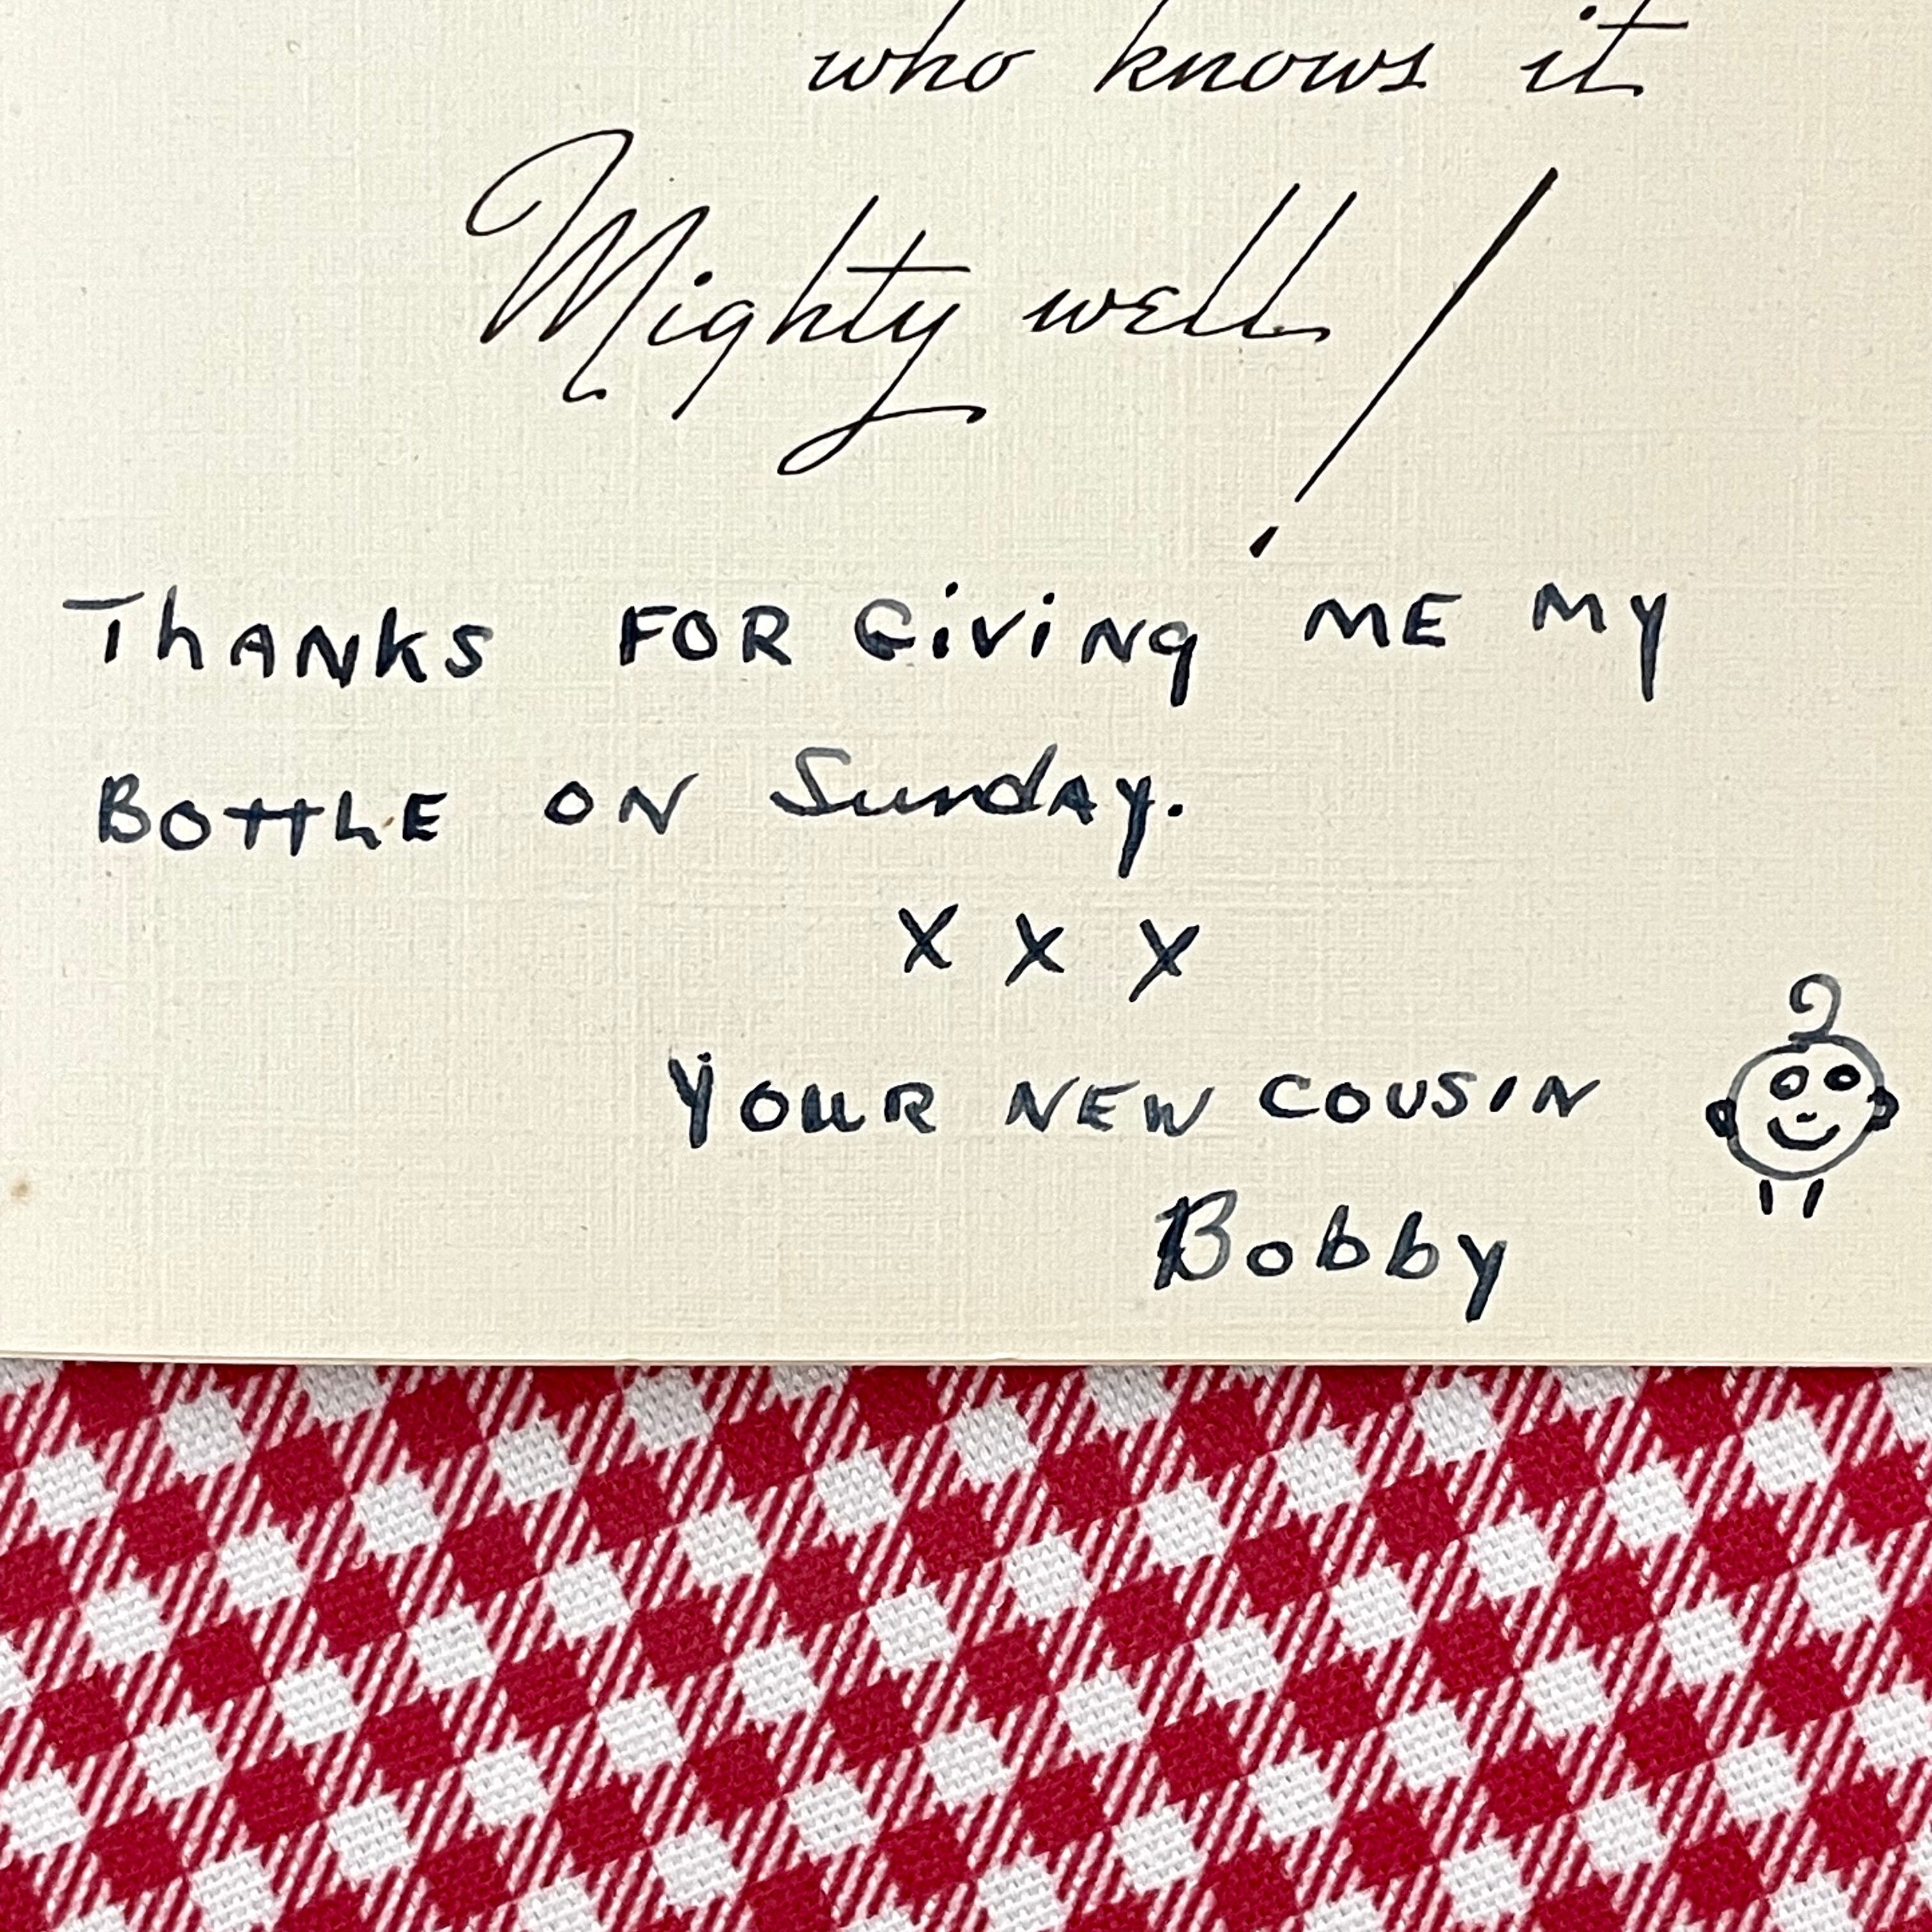 who knows it
Mighty well!
ThANKS FOR GiViNg ME MY
BOttLE ON SundAy.
x x x
YOUR NEW COUSIN
Bobby